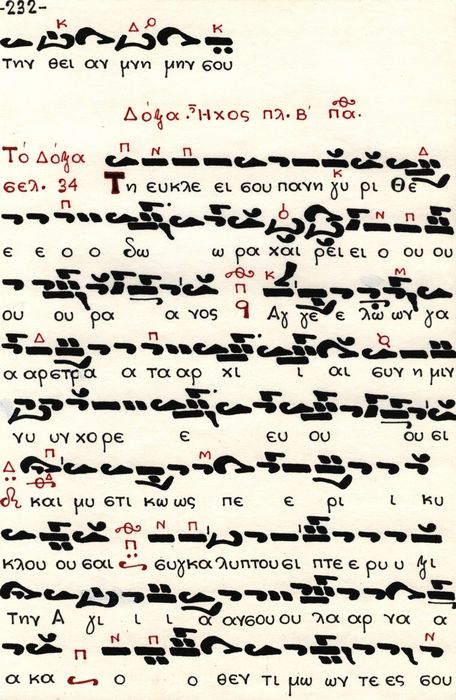 -232-
την θει αν μνη μην σου
Δόξα. Ἦχος πλ. Β΄ Πα.
Τό Δόξα
σελ. 34 Τη ευκλε ει σου πανη γυ ρι Θε
ε ε ο ο δω ω ρα χαι ρει ει ο ου ου
ου ου ρα α νος Αγ γε ε λω ων γα
α α ρ στρα α τα αρ χι ι αι συν η μιν
νυ υν χο ρε ε ευ ου ου σι
και μυ στι κω ως πε ε ρι ι κυ
κλου ου σαι συγκα λυπτου σι πτε ε ρυ υ ξι
την Α γι ι ι α αν σου ου λα αρ να α
α κα ο ο θεν τι μω ων τε ες σου